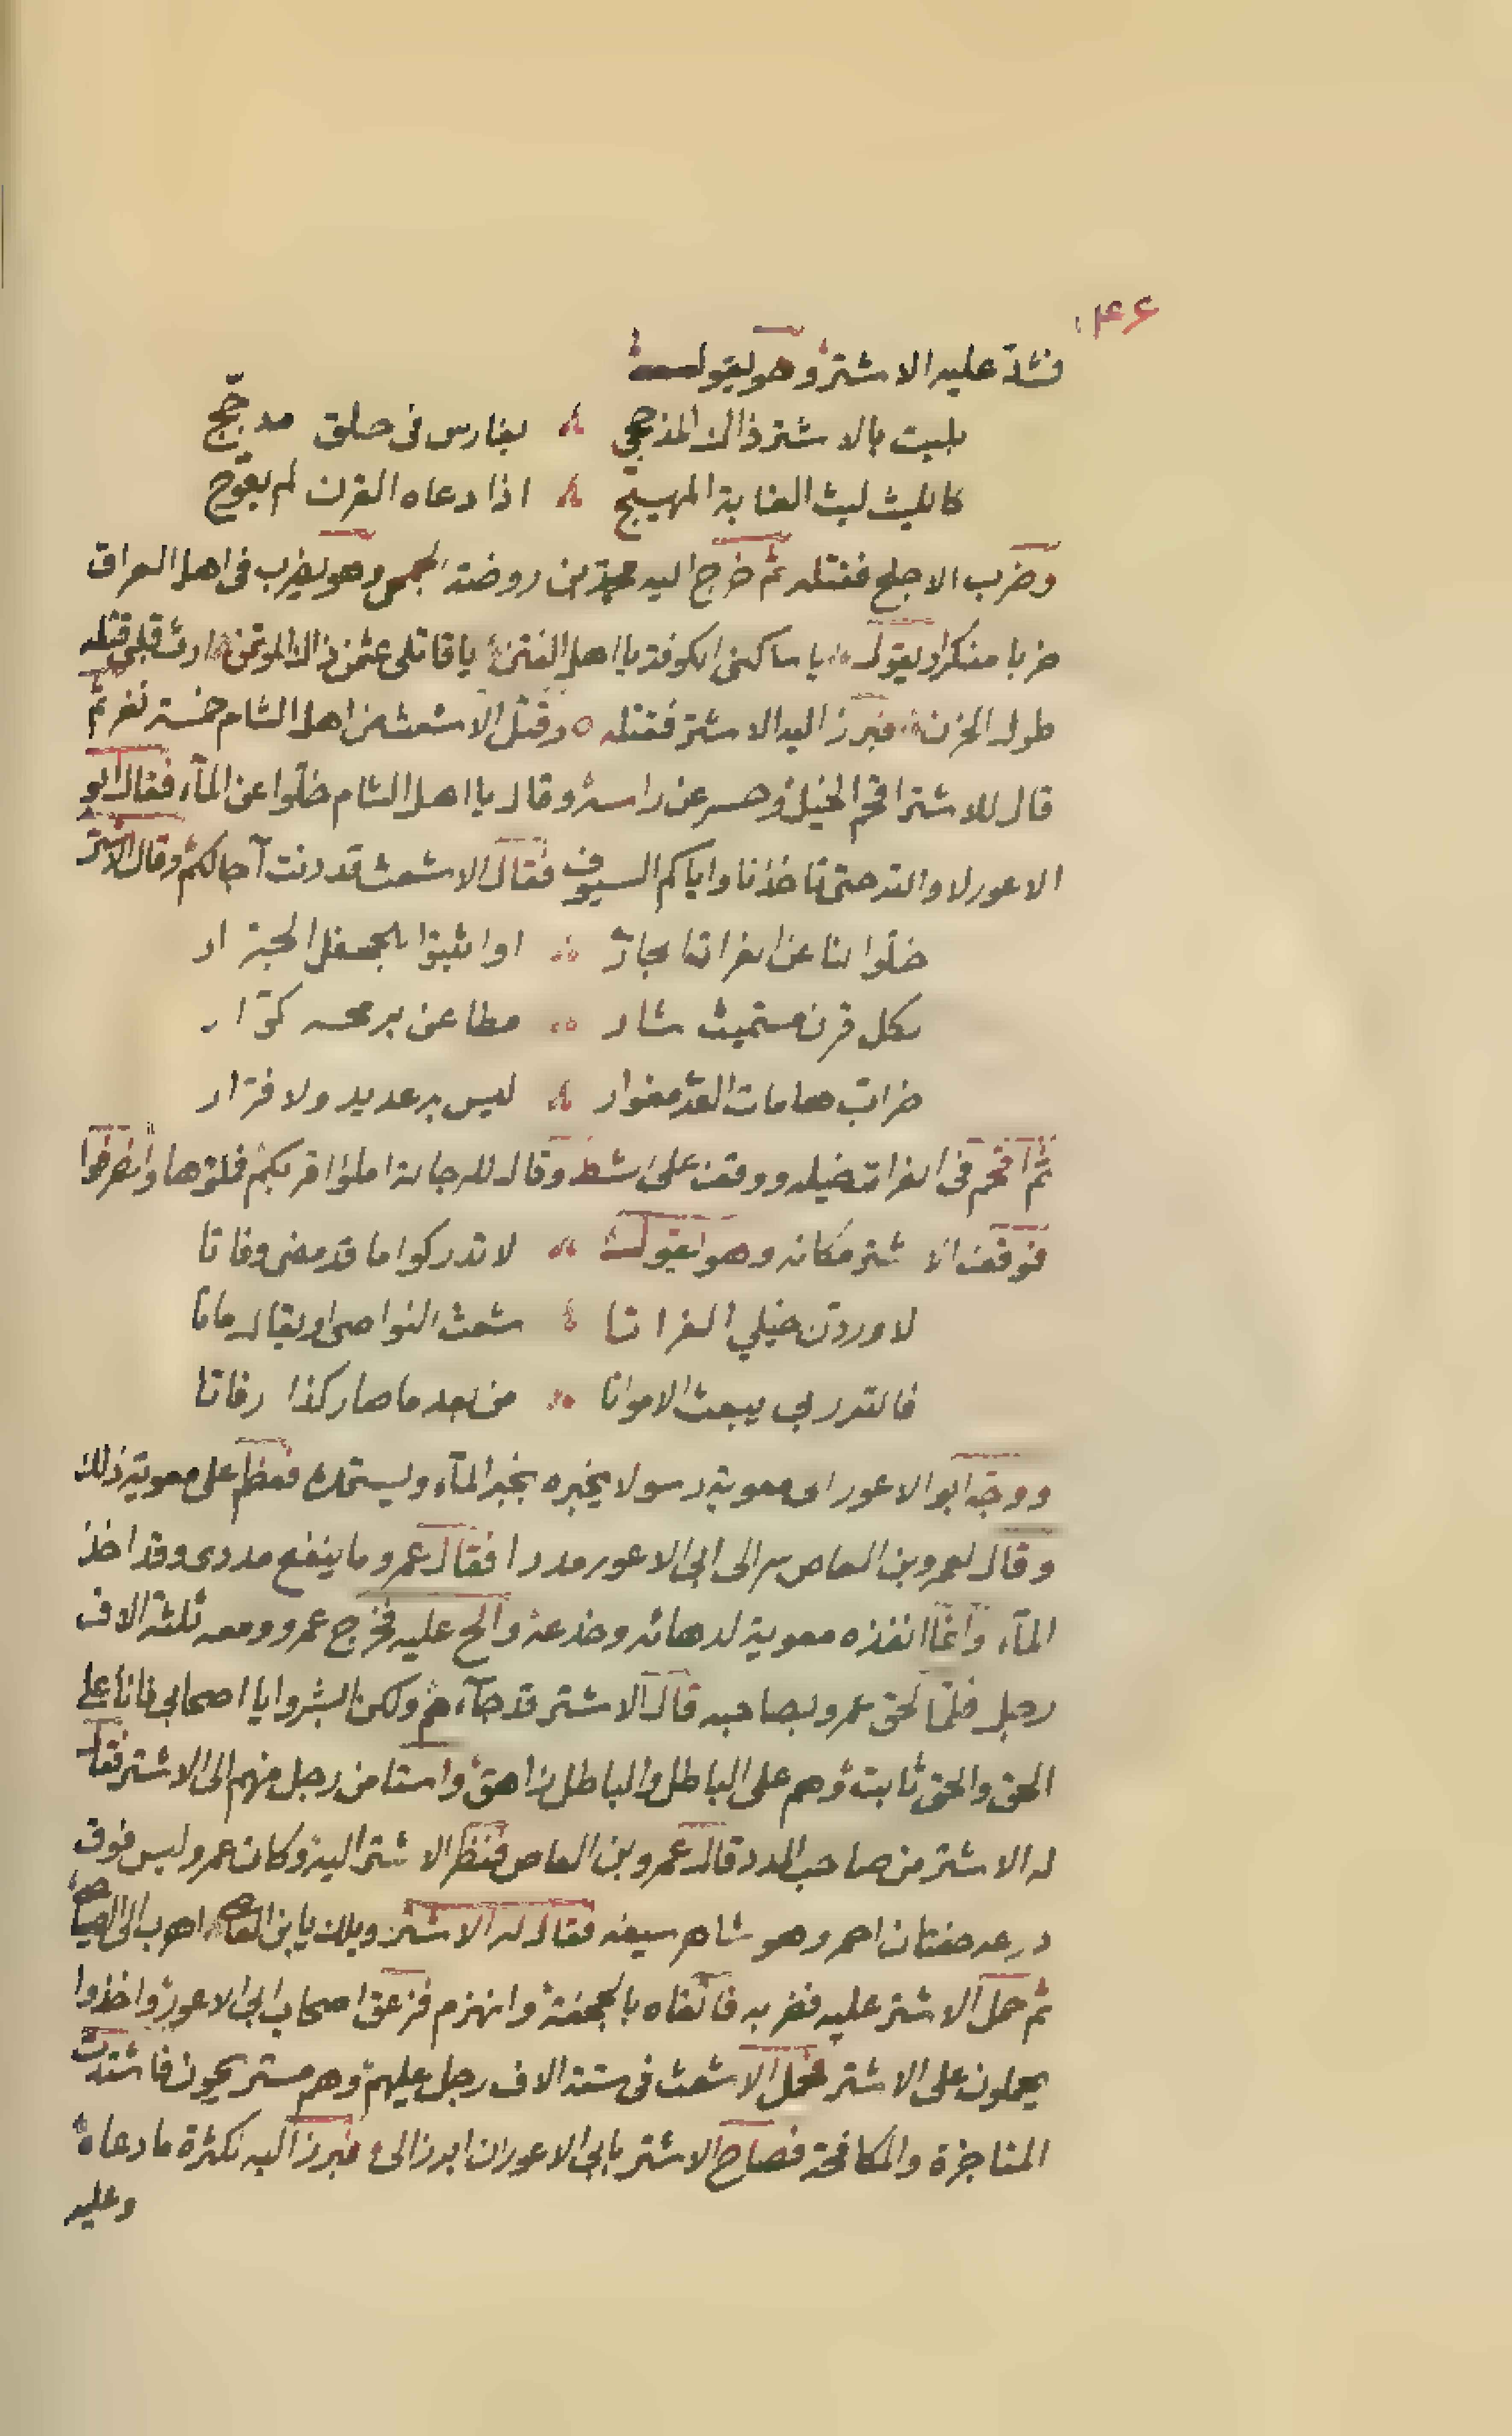 ۱۴۶
فشدّ عليه الاشتر وهو يقول
بليت بالاشتر ذاك المذحجي بفارس في حلق مدجّج
كالليث ليث الغابة المهيّج اذا دعاه القرن لم يعوّج
وضرب الاجلح فقتله ثم خرج اليه محمد بن روضة الجمحي وهو يضرب في اهل العراق
ضربا منكرا ويقول يا ساكني الكوفة يا اهل الفتن يا قاتلي عثمن ذاك الموتمن اورث قلبي قتله
طول الحزن فبرز اليه الاشتر فقتله وقتل الاشعث من اهل الشام خمسة نفر ثم
قال للاشتر اقحم الخيل وحسر عن راسه وقال يا اهل الشام خلّوا عن المآء فقال ابو
الاعور لا والله حتى تاخذنا واياكم السيوف فقال الاشعث قد دنت آجالكم وقال الاشتر
خلّوا لنا عن الفرات الجار او اثبتوا للجحفل الجرّار
بكل قرن مستميت شار مطاعن برمحه كرّار
ضراب هامات العد مغوار ليس برعديد ولا فرّار
ثم اقحم في الفرات خيله ووقف على شط وقال للرجالة املؤا قربكم فملؤها وانصرفوا
فوقف الاشتر مكانه وهو يقول لا تدركوا ما قد مضى وفاتا
لاوردن خيلي الفراتا شعث النواصي او يقال ماتا
فالله ربي يبعث الاموتا من بعد ما صار كذا رفاتا
ووجّه ابو الاعور الى معوية رسولا يخبره بخبر المآء ويستمده فعظم على معوية ذلك
وقال لعمرو بن العاص سر الى ابي الاعور مددا فقال عمرو ما ينفع مددى وقد اخذ
المآء وانما انفذه معوية لدهائه وخدعه والح عليه فخرج عمرو ومعه ثلثة الاف
رجل فلمّا لحق عمرو بصاحبه قال الاشتر قد جآءهم ولكن ابشروا يا اصحابي فانا على
الحق والحق ثابت وهم على الباطل والباطل زاهق واستامن رجل منهم الى الاشتر فقال
له الاشتر من صاحب المدد قال عمرو بن العاص فنظر الاشتر اليه وكان عمرو لبس فوق
درعه خفتان احمر وهو شاهر سيفه فقال له الاشتر ويلك يا بن العاص اهرب الى
ثم حمل الاشتر عليه فضربه فاتّقاه بالجحفة وانهزم فزعق اصحاب ابي الاعور واخذوا
يحملون على الاشتر فحمل الاشعث في ستة الاف رجل عليهم وهم مستريحون فاشتدت
المناجزة والمكافحة فصاح الاشتر بابي الاعور ان ابرز الىّ فبرز اليه لكثرة ما دعاه
وعليه